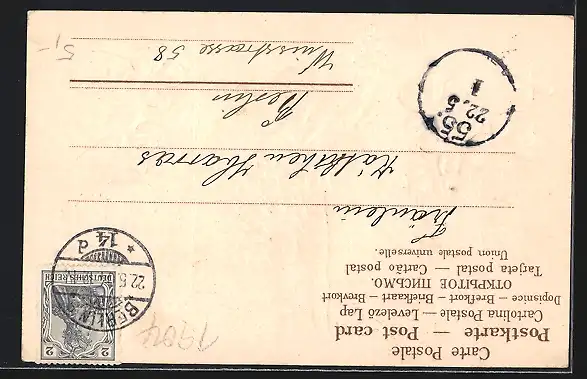 Carte Postale
Postkarte — Post card
Cartolina Postale — Levelező Lap
Dopisnice — Brefkort — Briefkaart — Brevkort
ОТКРЫТОЕ ПИСЬМО.
Tarjeta postal — Cartão postal
Union postale universelle.
1904
2 2
DEUTSCHES REICH
BERLIN
22.5
* 14 d
Fräulein
Käthchen Harras
Berlin
strasse 58
55.
22.5
1
5,-